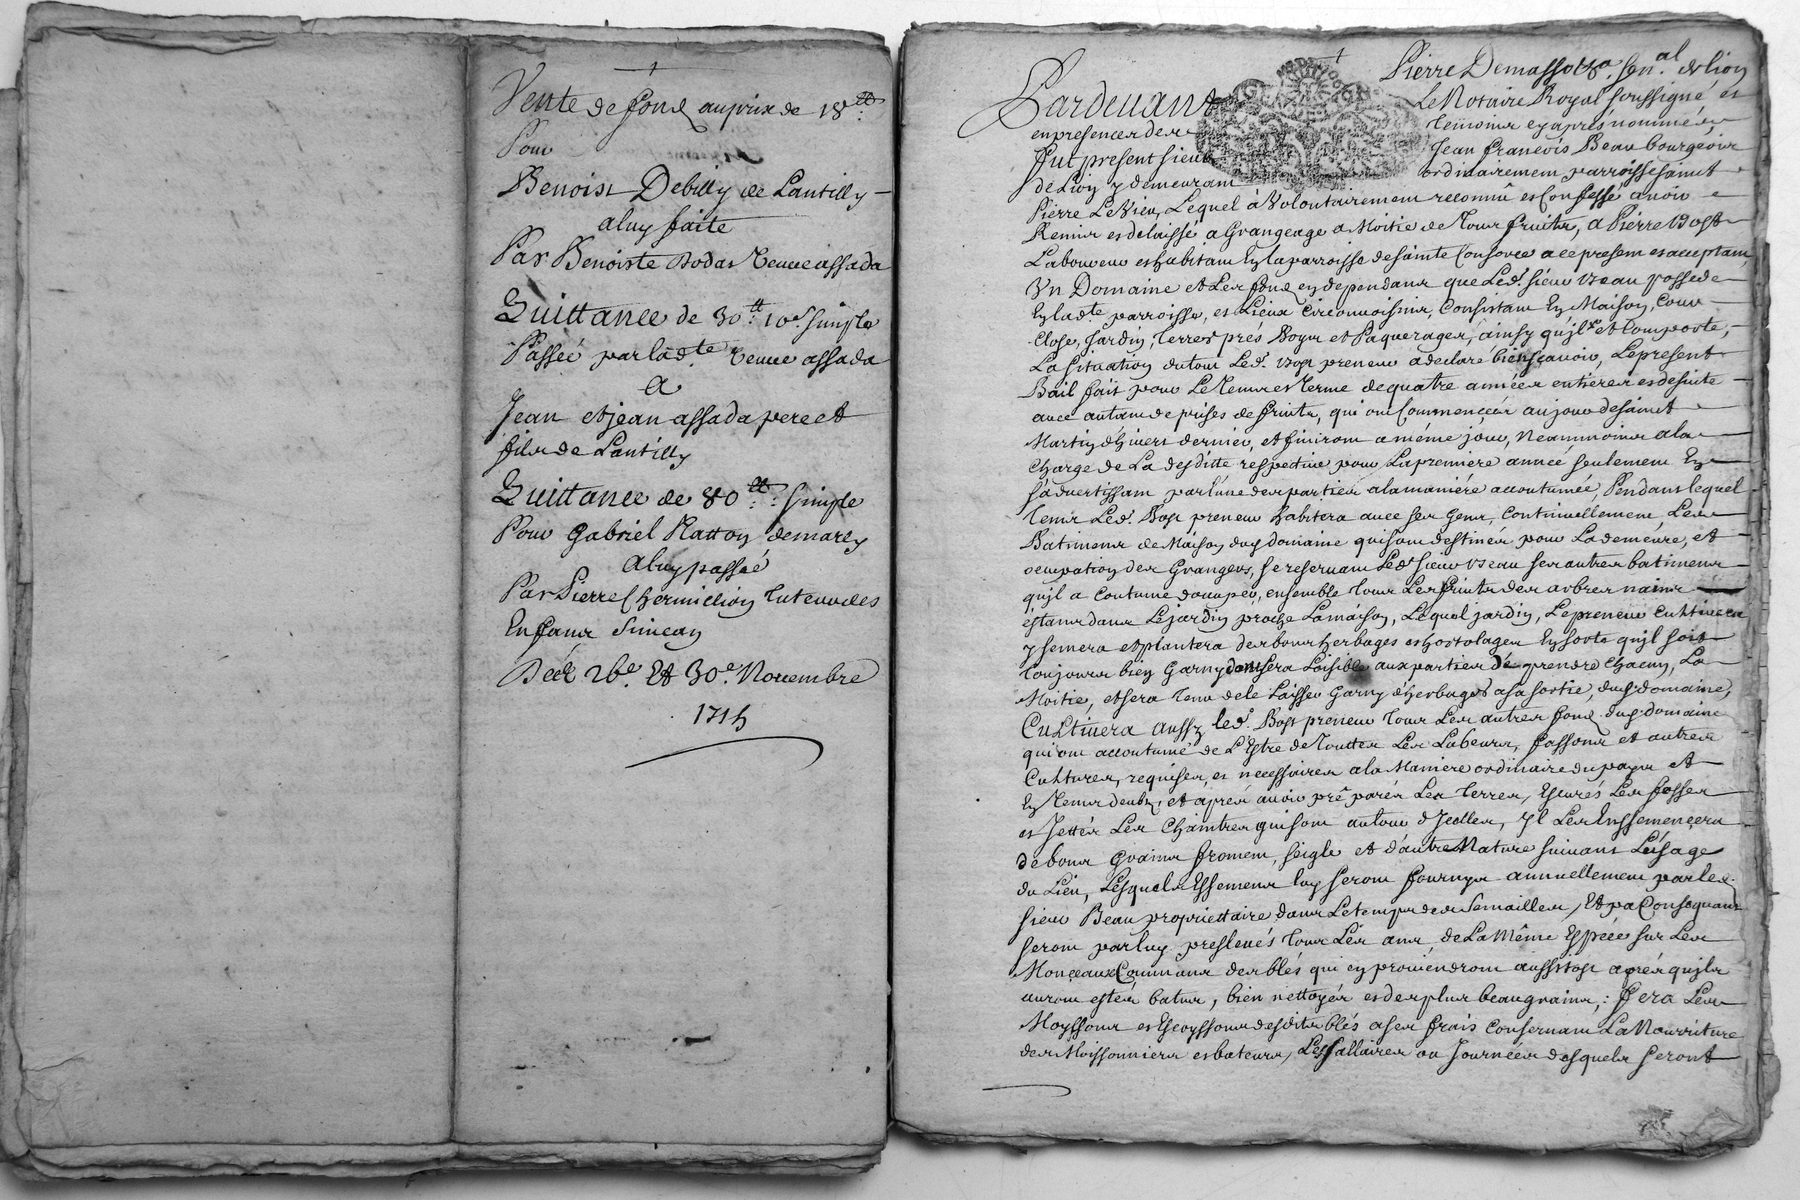 Vente de fond au prix de 18 tt
Pour
Benoist Debilly de Lantilly
a luy faite
Par Benoiste Dodas veuve assada
Quittance de 30 tt 10 s simple
Passée par lad.te veuve assada
A
Jean et jean assada pere et
fils de Lantilly
Quittance de 80 tt simple
Pour Gabriel Ratton demarcy
a luy passée
Par Pierre Chermillion tuteur des
Enfans Simean
Du 26.e Et 30.e Novembre
1715
Pierre Demasso sen.al de lion
Pardevant Le Notaire Royal soussigné, et
en presence des temoins cy apres nommes,
fut present sieur Jean francois Beau bourgeois
de Lion y demeurant ordinairement parroisse saint
Pierre Le Vieu, Lequel à Volontairement reconnû et Confessé avoir
Remis et delaissé a Grangeage a Moitie de tous fruits, a Pierre Bost
Laboureur et habitant En la parroisse de sainte Consorce a ce present et acceptant,
Un Domaine et Les fond en dependans que Led. sieur Beau possede
En lad.te parroisse, et Lieux Circonvoisins, Consistant En Maison, Cour
Close, Jardin, Terres prés Royer et Paquerages, ainsy qu'il se Comporte,
La situation du tout Led. Bost preneur a declaré bien scavoir, Le present
Bail fait pour Le tems et terme de quatre années entieres et desuite
avec autant de prises de fruits, qui ont Commencées au jour de saint
Martin d'hivers dernier, et finiront a même jour, Neammoins a la
Charge de La desditte respective pour La premiere année seulement En
s'advertissant par l'une des parties a la maniére accoutumée, Pendant lequel
tems Led. Bost preneur habitera avec ses Gens, Continuellement, Les
Batimens de Maison dud domaine qui sont destinés pour La demeure, et
ocupation des Grangers, se reservant Led. sieur Beau ses autres batimens
qu'il a Coutume d'occuper, ensemble tous Les fruits des arbres nains
êstans dans Le jardin proche La maison, Lequel jardin, Le preneur Cultivera
y semera et plantera des bons herbages et hortolages En sorte qu'il soit
toujours bien Garny dont sera Loisible aux parties de prendre Chacun, La
Moitie, et sera tenu de le Laisser Garny d'herbages a sa sortie, dud. domaine,
Cultivera aussy led. Bost preneur tous Les autres fond dud. domaine
qui ont accoutumé de L'Estre de toutes Les Labeurs, fassons et autres
Cultures, requises, et necessaires a la Maniere ordinaire du pays et
En tems deub, et aprés avoir préparés Les terres, Escurés Les fosses
et Jettés Les Chaintres qui sont autour d'Jcelles, Yl Les Enssemencera
de bons Grains froment, seigle et d'autre Nature suivant L'usage
du Lieu, Lesquels Essemens luy seront fournys annuellement par le
sieur Beau proprietaire dans Le temps des semailles, Et pa Consequant
seront par luy preslevés tous Les ans, de La Même Espéce sur Les
Monçeaux Communs des blés qui en proviendront aussitost aprés qu'ils
auront estés batus, bien nettoyés et des plus beau grains,: fera Les
Moyssons et Escoyssons desdits blés a ses frais Consernant La Nourriture
des Moissonniers et bateurs, Les sallaires ou Journées desquels seront